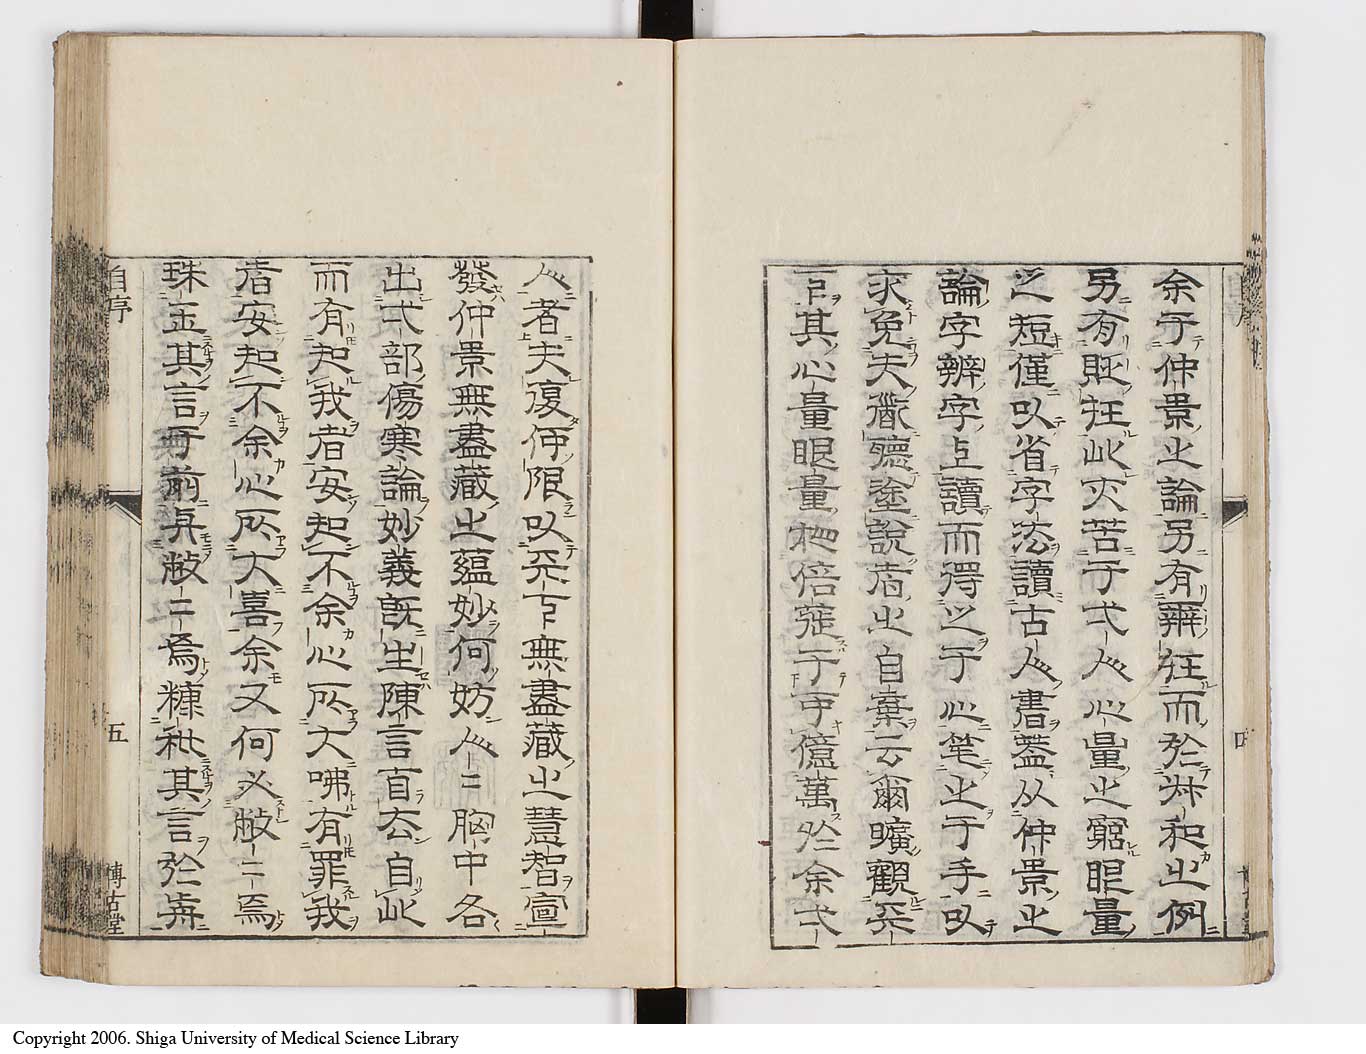 余于仲景之論另有辨在而於叔和之例
另有貶在此亦苦于弌人心量之窮眼量
之短僅以省字法讀古人書盖从仲景之
論字辨字上讀而得之于心笔之于手以
求免夫道聽塗說者之自棄云爾曠觀天
下其心量眼量地倍蓰于可億萬於余弌
人者夫復何限以天下無盡藏之慧智宣
發仲景無盡藏之蘊妙何妨人二胸中各
出弌部傷寒論妙義旣生陳言百厺自此
而有知我者安知不余心所大咈有罪我
者安知不余心所大喜余又何必敝二焉
珠玉其言于前與敝二焉糠秕其言於
自序
五
博古堂